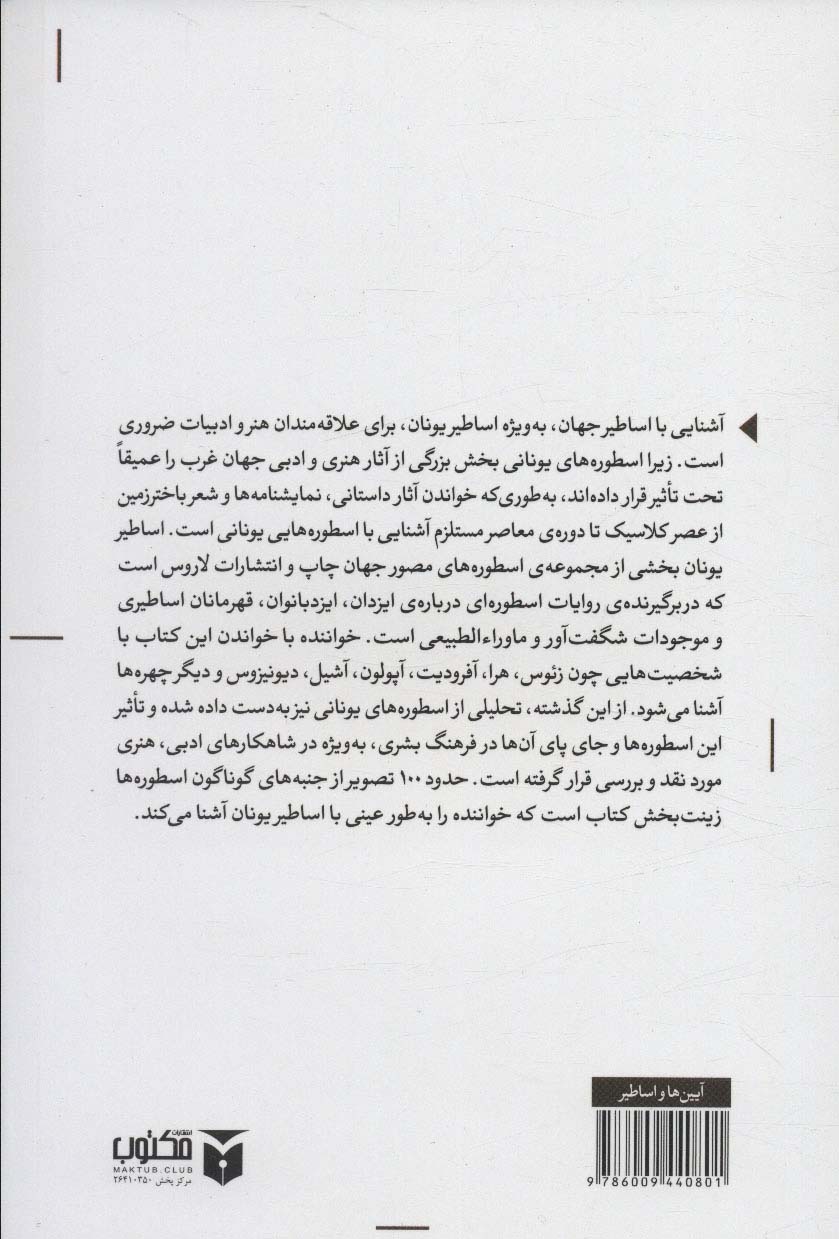 آشنایی با اساطیر جهان، به‌ویژه اساطیر یونان، برای علاقه‌مندان هنر و ادبیات ضروری
است. زیرا اسطوره‌های یونانی بخش بزرگی از آثار هنری و ادبی جهان غرب را عمیقاً
تحت تأثیر قرار داده‌اند، به‌طوری‌که خواندن آثار داستانی، نمایشنامه‌ها و شعر باخترزمین
از عصر کلاسیک تا دوره‌ی معاصر مستلزم آشنایی با اسطوره‌هایی یونانی است. اساطیر
یونان بخشی از مجموعه‌ی اسطوره‌های مصور جهان چاپ و انتشارات لاروس است
که دربرگیرنده‌ی روایات اسطوره‌ای درباره‌ی ایزدان، ایزدبانوان، قهرمانان اساطیری
و موجودات شگفت‌آور و ماوراءالطبیعی است. خواننده با خواندن این کتاب با
شخصیت‌هایی چون زئوس، هرا، آفرودیت، آپولون، آشیل، دیونیزوس و دیگر چهره‌ها
آشنا می‌شود. از این گذشته، تحلیلی از اسطوره‌های یونانی نیز به‌دست داده شده و تأثیر
این اسطوره‌ها و جای پای آن‌ها در فرهنگ بشری، به‌ویژه در شاهکارهای ادبی، هنری
مورد نقد و بررسی قرار گرفته است. حدود ۱۰۰ تصویر از جنبه‌های گوناگون اسطوره‌ها
زینت‌بخش کتاب است که خواننده را به‌طور عینی با اساطیر یونان آشنا می‌کند.
آیین‌ها و اساطیر
9 786009 440801
انتشارات
مکتوب
MAKTUB.CLUB
مرکز پخش ۲۶۴۱۰۳۵۰